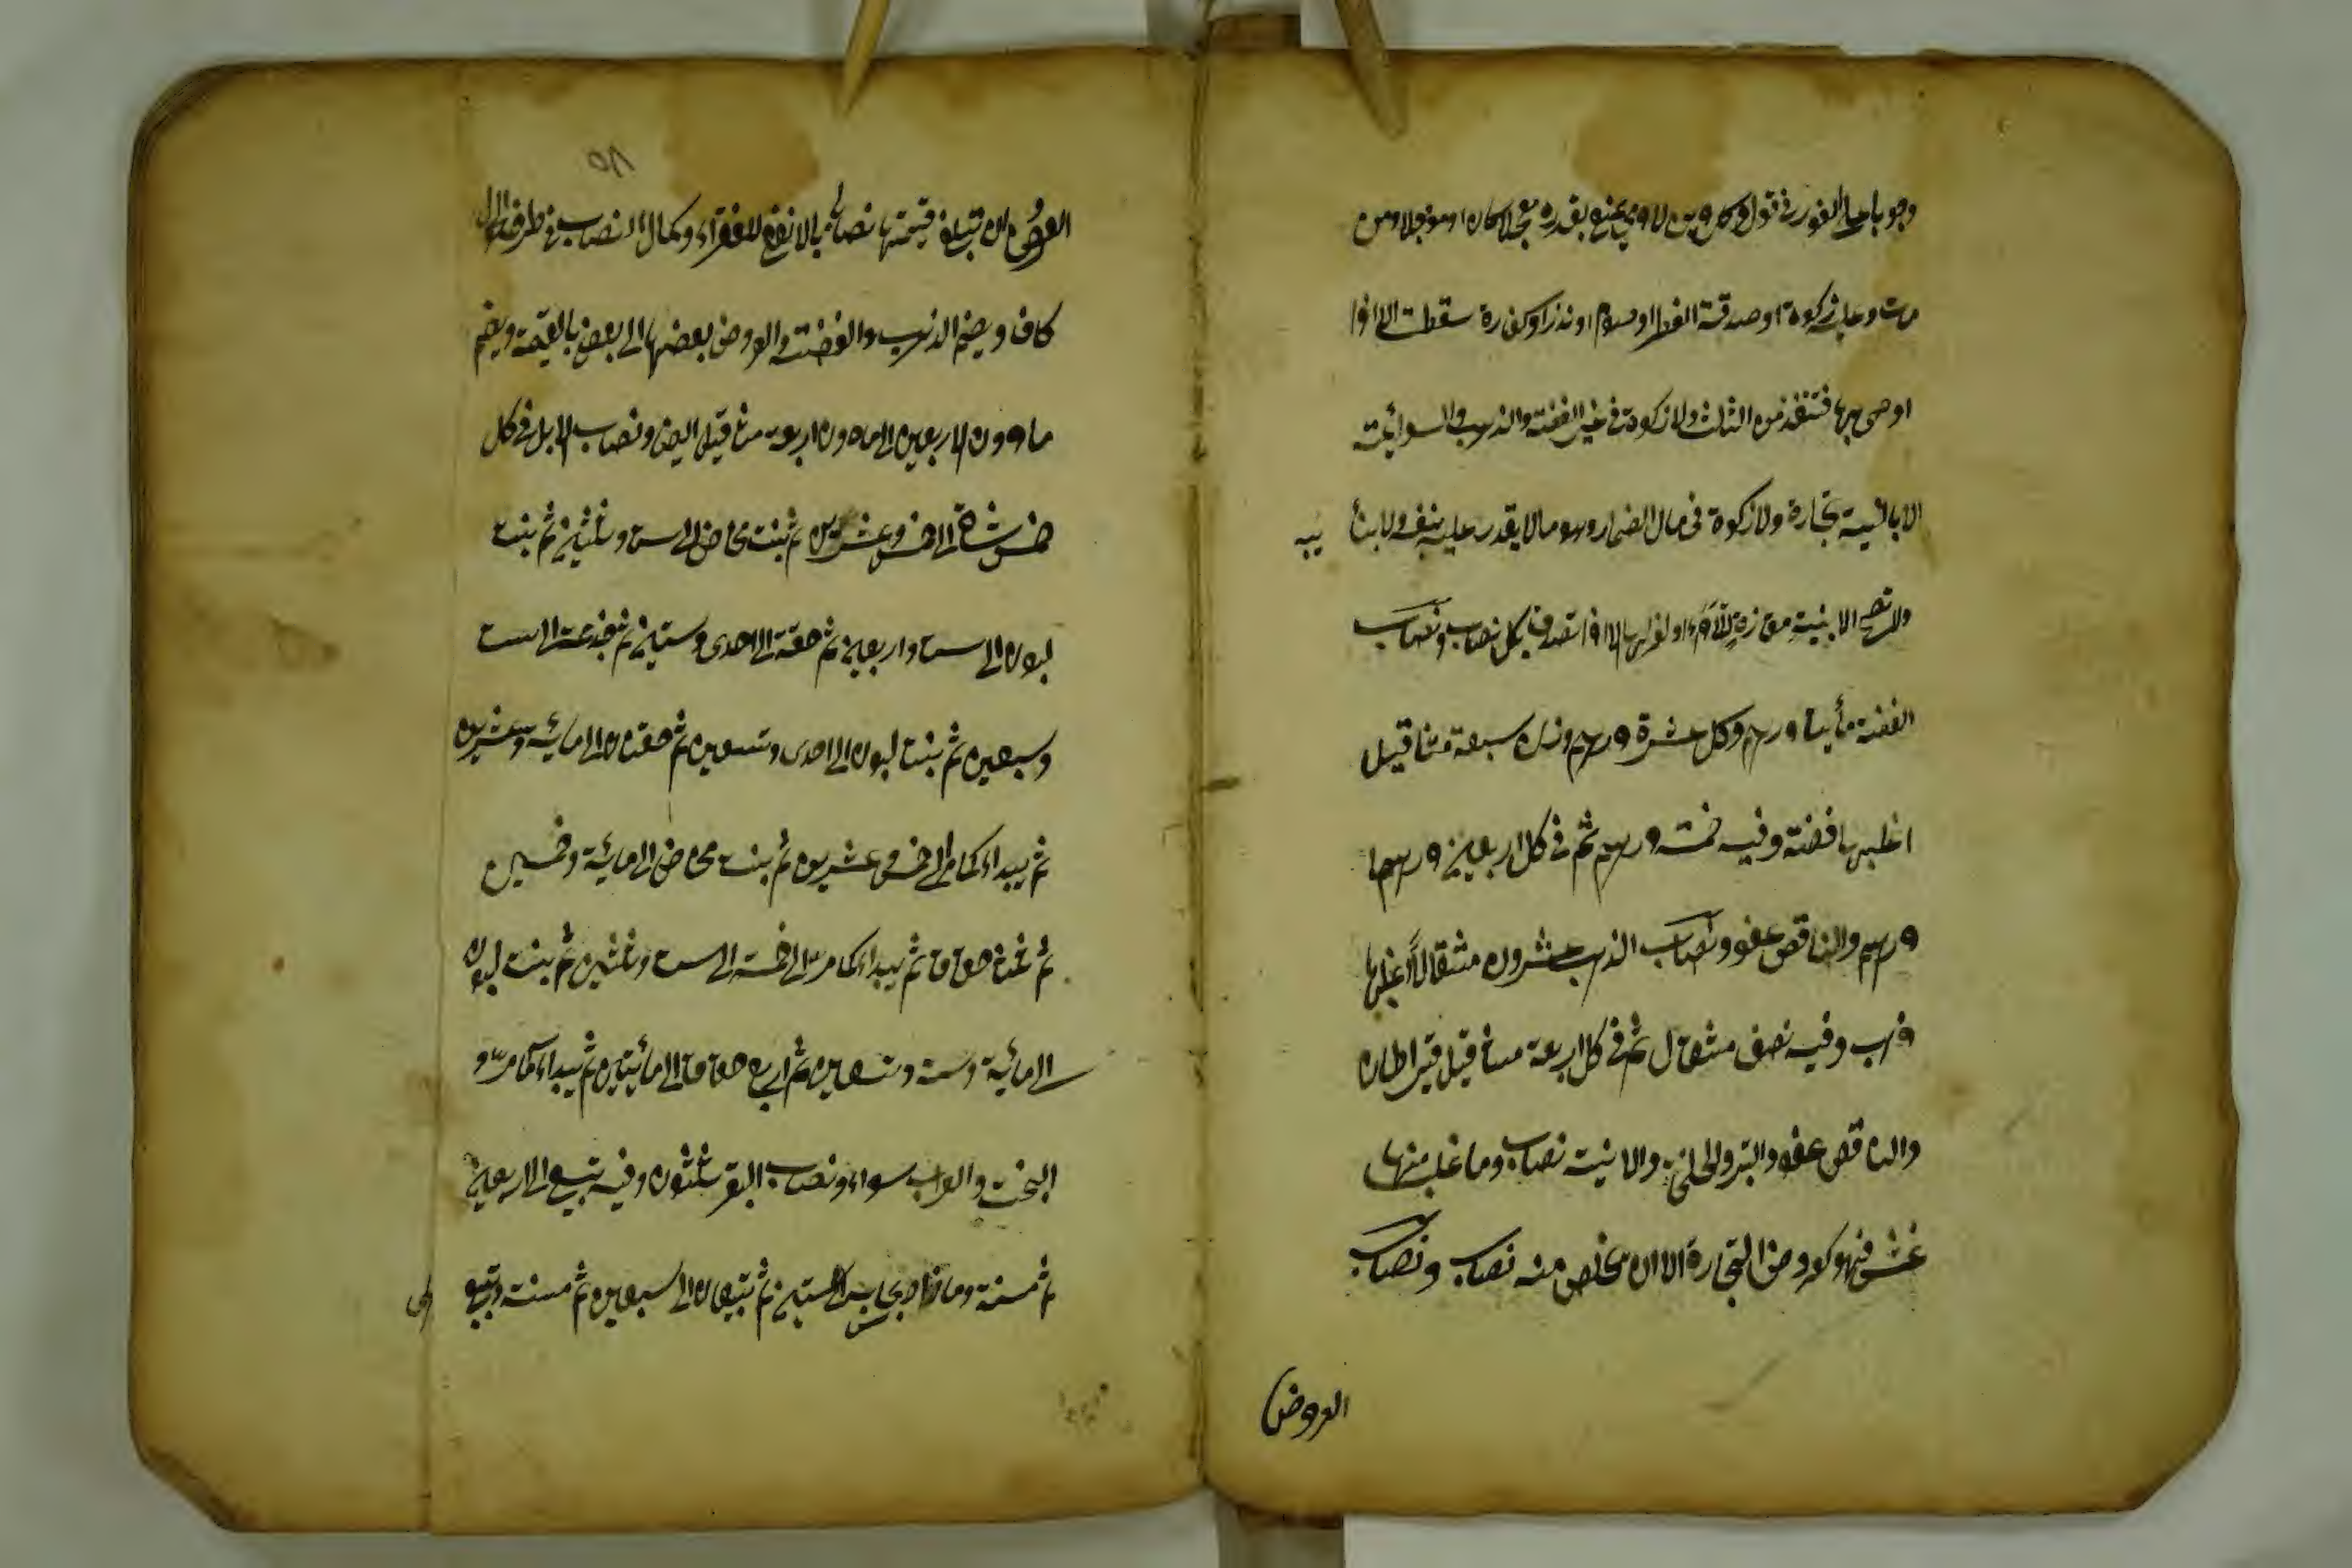 وجوبا على الفور في قول وكل دين لادمي يمنع بقدره معجلا كان او مؤجلا ومن
مات وعليه زكوة او صدقة الفطر او صوم او نذر او كفارة سقطت الا اذا
اوصى بها فتنفذ من الثلث ولا زكوة في غير الفضة والذهب والسوائمة
الا بالنية تجارة ولا زكوة في مال الضمار وهو ما لا يقدر عليه بنفسه ولا بنا
ئبه
ولا تصح الا بنية مقارنة للاداء او لعزلها الا اذا تصدق بكل نصاب ونصاب
الفضة مأيتا درهم وكل عشرة درهم وزن سبعة مثاقيل
اغلبها فضة وفيه خمسة درهم ثم في كل اربعين درهما
درهم والناقص عفو ونصاب الذهب عشرون مثقالا اغلبها
ذهب وفيه نصف مثقال ثم في كل اربعة مثاقيل قيراطان
والناقص عفو والتبر والحلي والانية نصاب وما غلب منها
غش فهو كعروض التجارة الا ان يخلص منه نصاب ونصاب
العروض
٨٥
العروض ان تبلغ قيمتها نصابا بالانفع للفقراء وكمال النصاب في طرف الحول
كاف ويضم الذهب والفضة والعروض بعضها الى بعض بالقيمة ويضم
ما دون الاربعين الى ما دون اربعة مثاقيل ايضا ونصاب الابل في كل
خمس شاة الى خمس وعشرين ثم بنت مخاض الى ست وثلثين ثم بنت
لبون الى ست واربعين ثم حقة الى احدى وستين ثم جذعة الى ست
وسبعين ثم بنت لبون الى احدى وتسعين ثم حقتان الى مائة وعشرين
ثم يبداء كما مر الى خمس وعشرين ثم بنت مخاض الى مائة وخمسين
ثم ثلاث حقاق ثم يبداء كما مر الى خمسة الى ست وثلثين ثم بنت لبون
الى مائة وستة وتسعين ثم اربع حقاق الى مائتين ثم يبداء كما مر و
البخت والعراب سواء ونصاب البقر ثلثون وفيه تبيع الى اربعين
ثم مسنة وما زاد بحسابه الى ستين ثم تبيعان الى سبعين ثم مسنة وتبيع